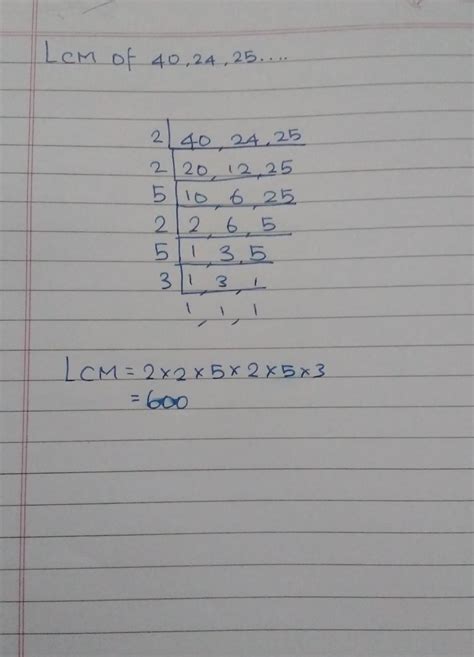 LCM of 40,24,25....
2 | 40, 24, 25
2 | 20, 12, 25
5 | 10, 6, 25
2 | 2, 6, 5
5 | 1, 3, 5
3 | 1, 3, 1
1, 1, 1
LCM = 2×2×5×2×5×3
= 600